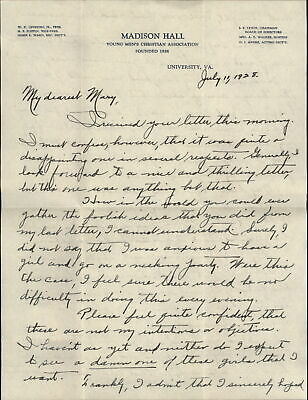 MADISON HALL
YOUNG MEN'S CHRISTIAN ASSOCIATION
FOUNDED 1858
BOARD OF DIRECTORS
UNIVERSITY, VA.
July 11, 1928.
My dearest Mary,
I received your letter this morning.
I must confess, however, that it was quite a
disappointing one in several respects. Generally I
look forward to a nice and thrilling letter,
but this one was anything but that.
How in the world you could ever
gather the foolish ideas that you did from
my last letter, I cannot understand. Surely, I
did not say that I was anxious to have a
girl and go on a necking party. Were this
the case, I feel sure there would be no
difficulty in doing this every evening.
Please feel quite confident that
these are not my intentions or objectives.
I haven't as yet and neither do I expect
to see a damn one of these girls that I
want. Frankly, I admit that I sincerely hoped